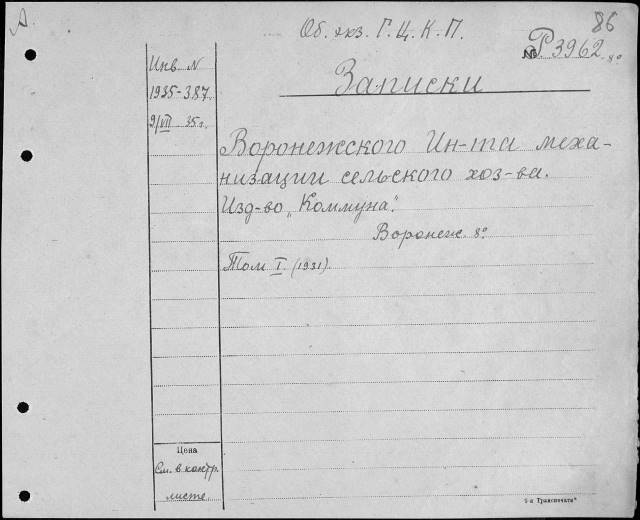 А
Об. экз. Г. Ц. К. П.
86
№ Р 3962. 8º
Записки
Инв. N
1935-387.
9/VII 35 г.
Воронежского Ин-та меха-
низации сельского хоз-ва.
Изд-во „Коммуна“.
Воронеж. 8º
Том I. (1931).
Цена
См. в контр.
листе.
"Транспечати"